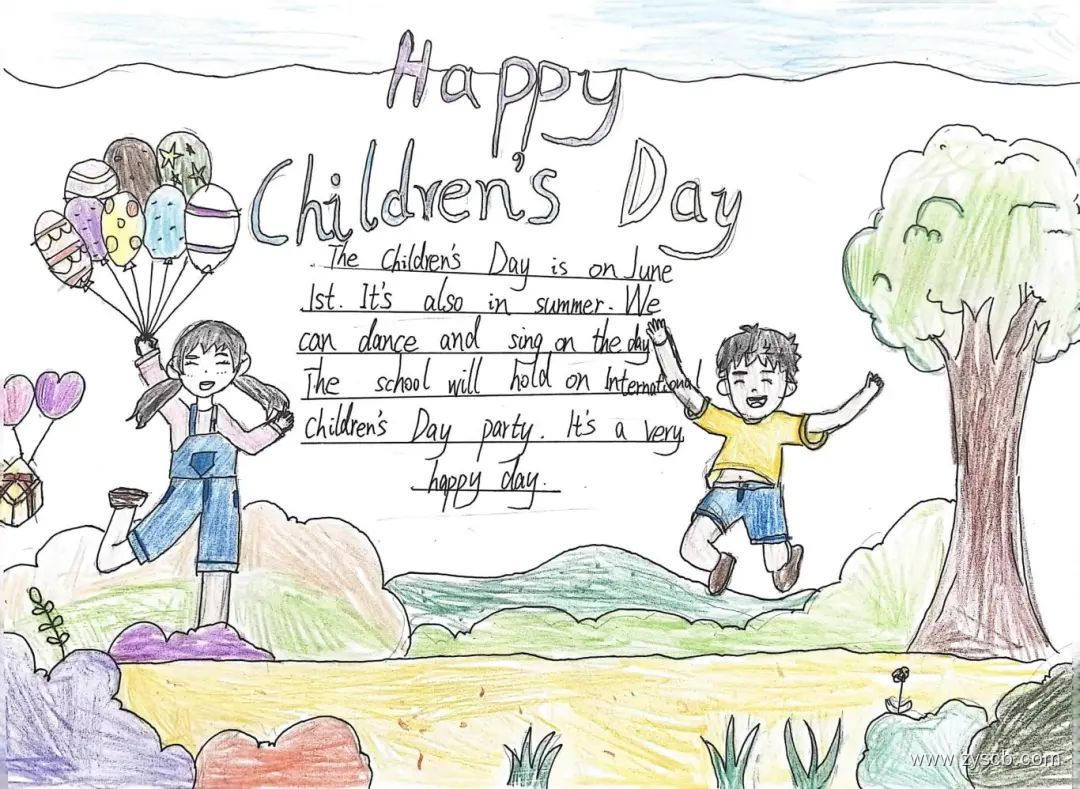 Happy
Children's Day
The Children's Day is on June
1st. It's also in summer. We
can dance and sing on the day
The school will hold on International
Children's Day party. It's a very
happy day.
www.zyscb.com